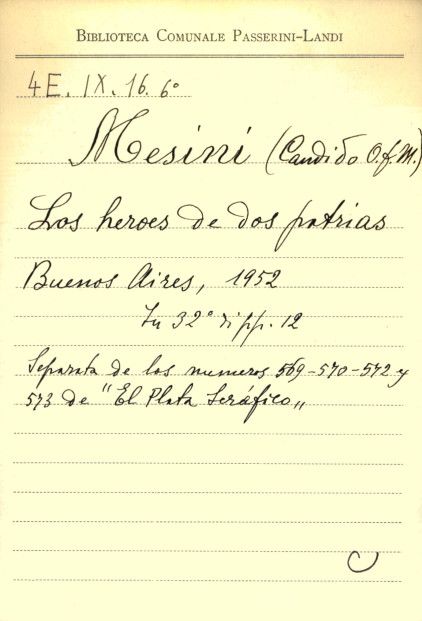 BIBLIOTECA COMUNALE PASSERINI-LANDI
4E. IX. 16. 6º
Mesini (Candido O.f.M.)
Los heroes de dos patrias
Buenos Aires, 1952
In 32º di pp. 12
Separata de los numeros 569-570-572 y
573 de "El Plata Seráfico„